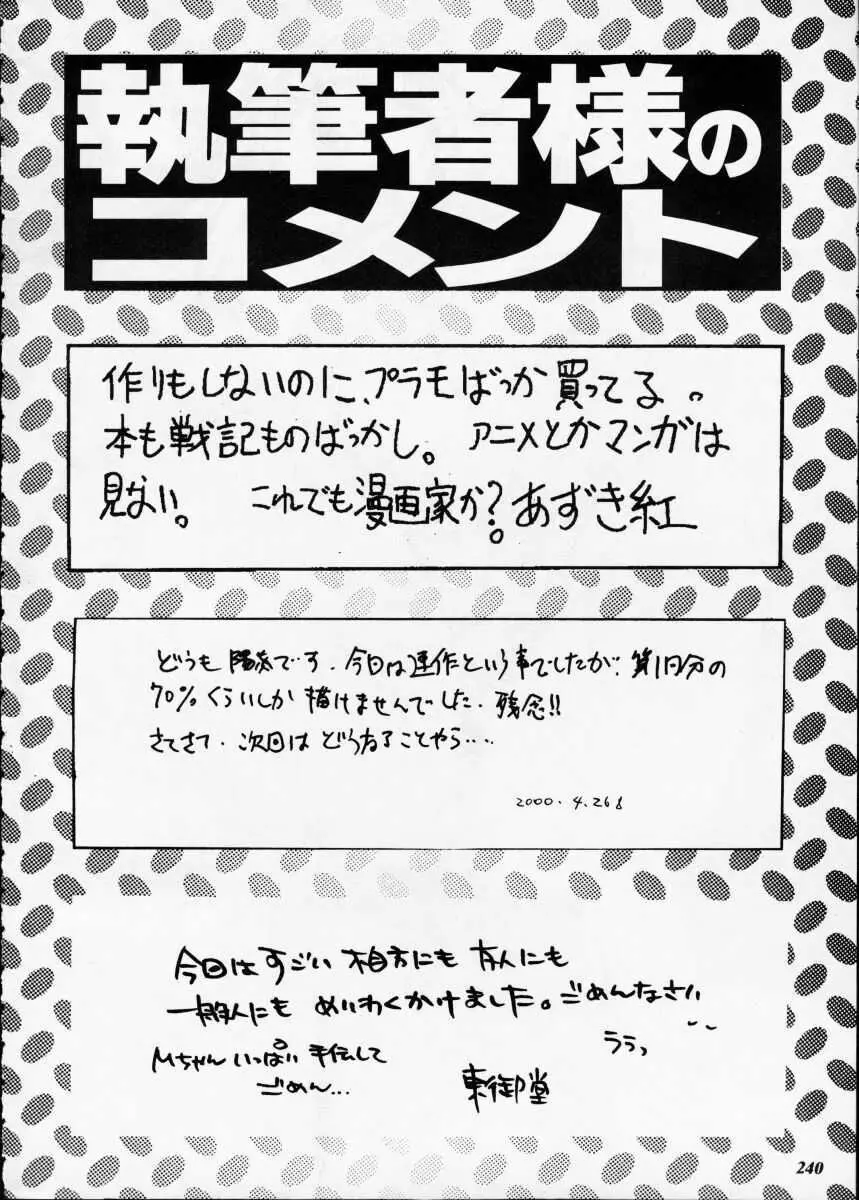 執筆者様の
コメント
作りもしないのに、プラモばっか買ってる。
本も戦記ものばっかし。アニメとかマンガは
見ない。これでも漫画家か?。あずき紅
どうも陽炎です。今回は連作という事でしたが、第1回分の
70%くらいしか描けませんでした。残念!!
さてさて、次回はどうなることやら‥‥
2000.4.26
今回はすごい相方にも友人にも
一般人にもめいわくかけました。ごめんなさい
うぅっ
Mちゃんいっぱい手伝して
ごめん...
東御堂
240